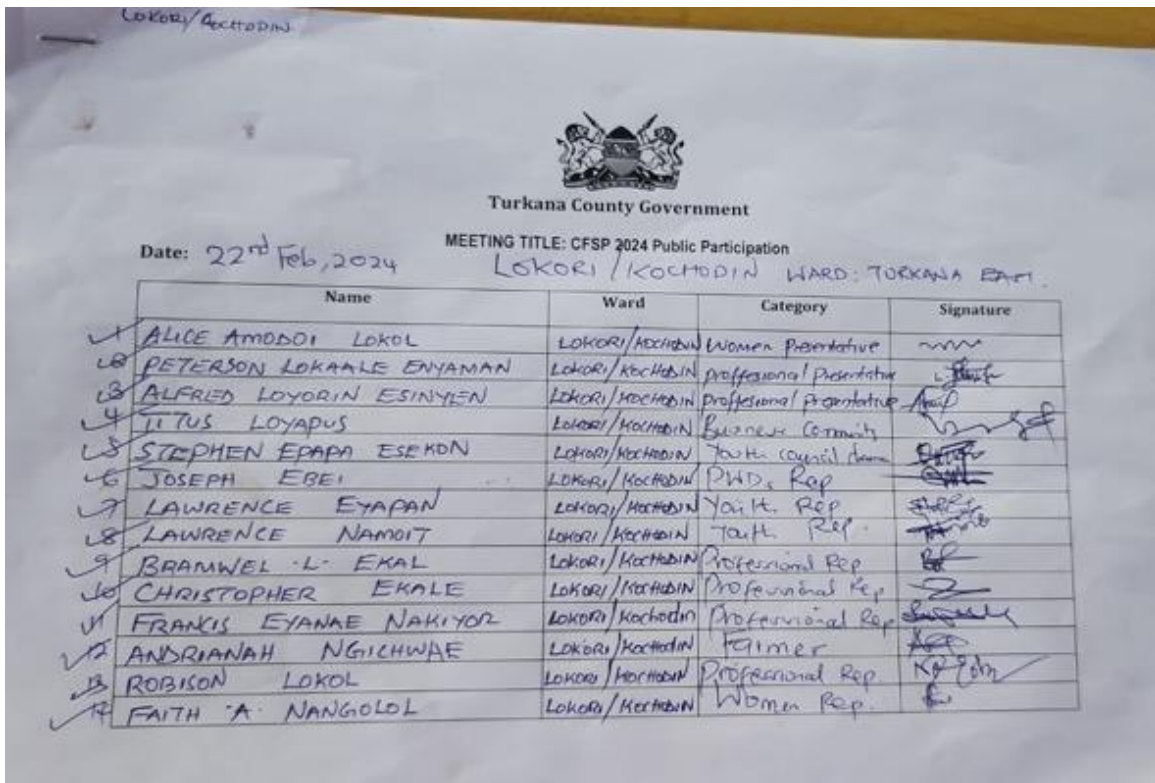 LOKORI/KOCHODIN
Turkana County Government
MEETING TITLE: CFSP 2024 Public Participation
Date: 22nd Feb, 2024 LOKORI/KOCHODIN WARD: TURKANA EAST.
Name Ward Category Signature
1 ALICE AMODOI LOKOL LOKORI/KOCHODIN Women Presentative
2 PETERSON LOKAALE ENYAMAN LOKORI/KOCHODIN proffessional Presentative
3 ALFRED LOYORIN ESINYEN LOKORI/KOCHODIN proffesional Presentative
4 TITUS LOYAPUS LOKORI/KOCHODIN Business
5 STEPHEN EPAPA ESEKON LOKORI/KOCHODIN Youth council
6 JOSEPH EBEI LOKORI/KOCHODIN PWDs Rep
7 LAWRENCE EYAPAN LOKORI/KOCHODIN Youth Rep
8 LAWRENCE NAMOIT LOKORI/KOCHODIN Youth Rep.
9 BRAMWEL .L. EKAL LOKORI/KOCHODIN Professional Rep
10 CHRISTOPHER EKALE LOKORI/KOCHODIN Professional Rep
11 FRANCIS EYANAE NAKIYOR LOKORI/Kochodin Professional Rep
12 ANDRIANAH NGICHWAE LOKORI/Kochodin Farmer
13 ROBISON LOKOL LOKORI/KOCHODIN Professional Rep.
14 FAITH A. NANGOLOL LOKORI/KOCHODIN Women Rep.